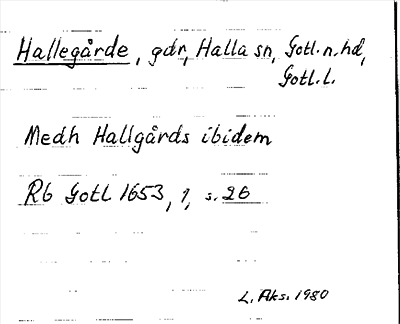 Hallegårde, gdr, Halla sn, Gotl. n. hd,
Gotl. l.
Medh Hallgårds ibidem
Rb Gotl 1653, 1, s. 26
L. Aks. 1980